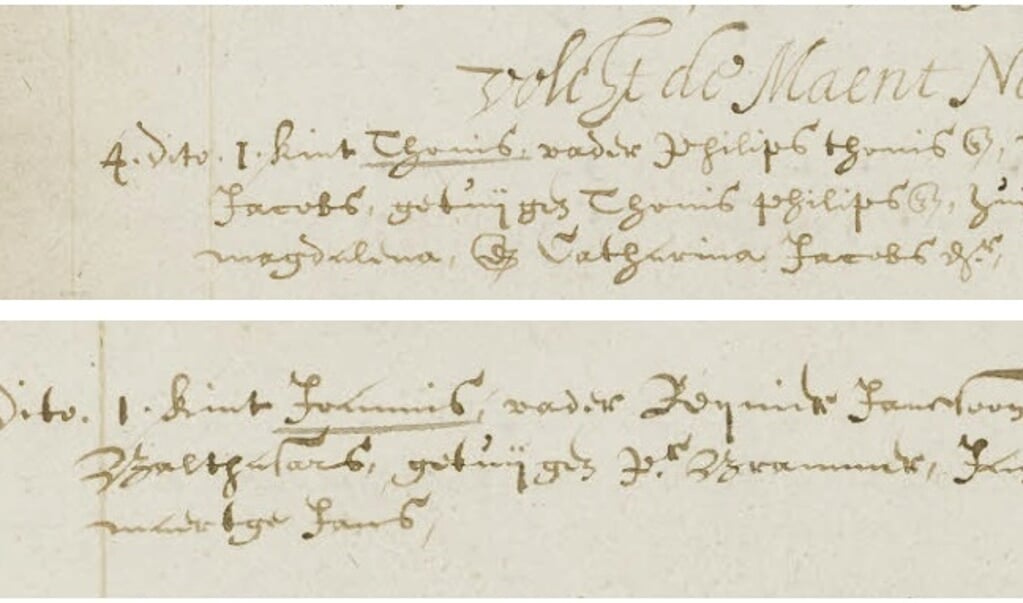 volcht de Maent No
4. dito. 1. kint Thonis, vader Philips thonis
Jacobs, getuijgen Thonis philips
magdalena, Catharina Jacobs dr,
dito. 1. kint Joannis, vader Reijnier Janssoon
Balthasars, getuijgen Pr Brammer, Jan
maertge Jans,